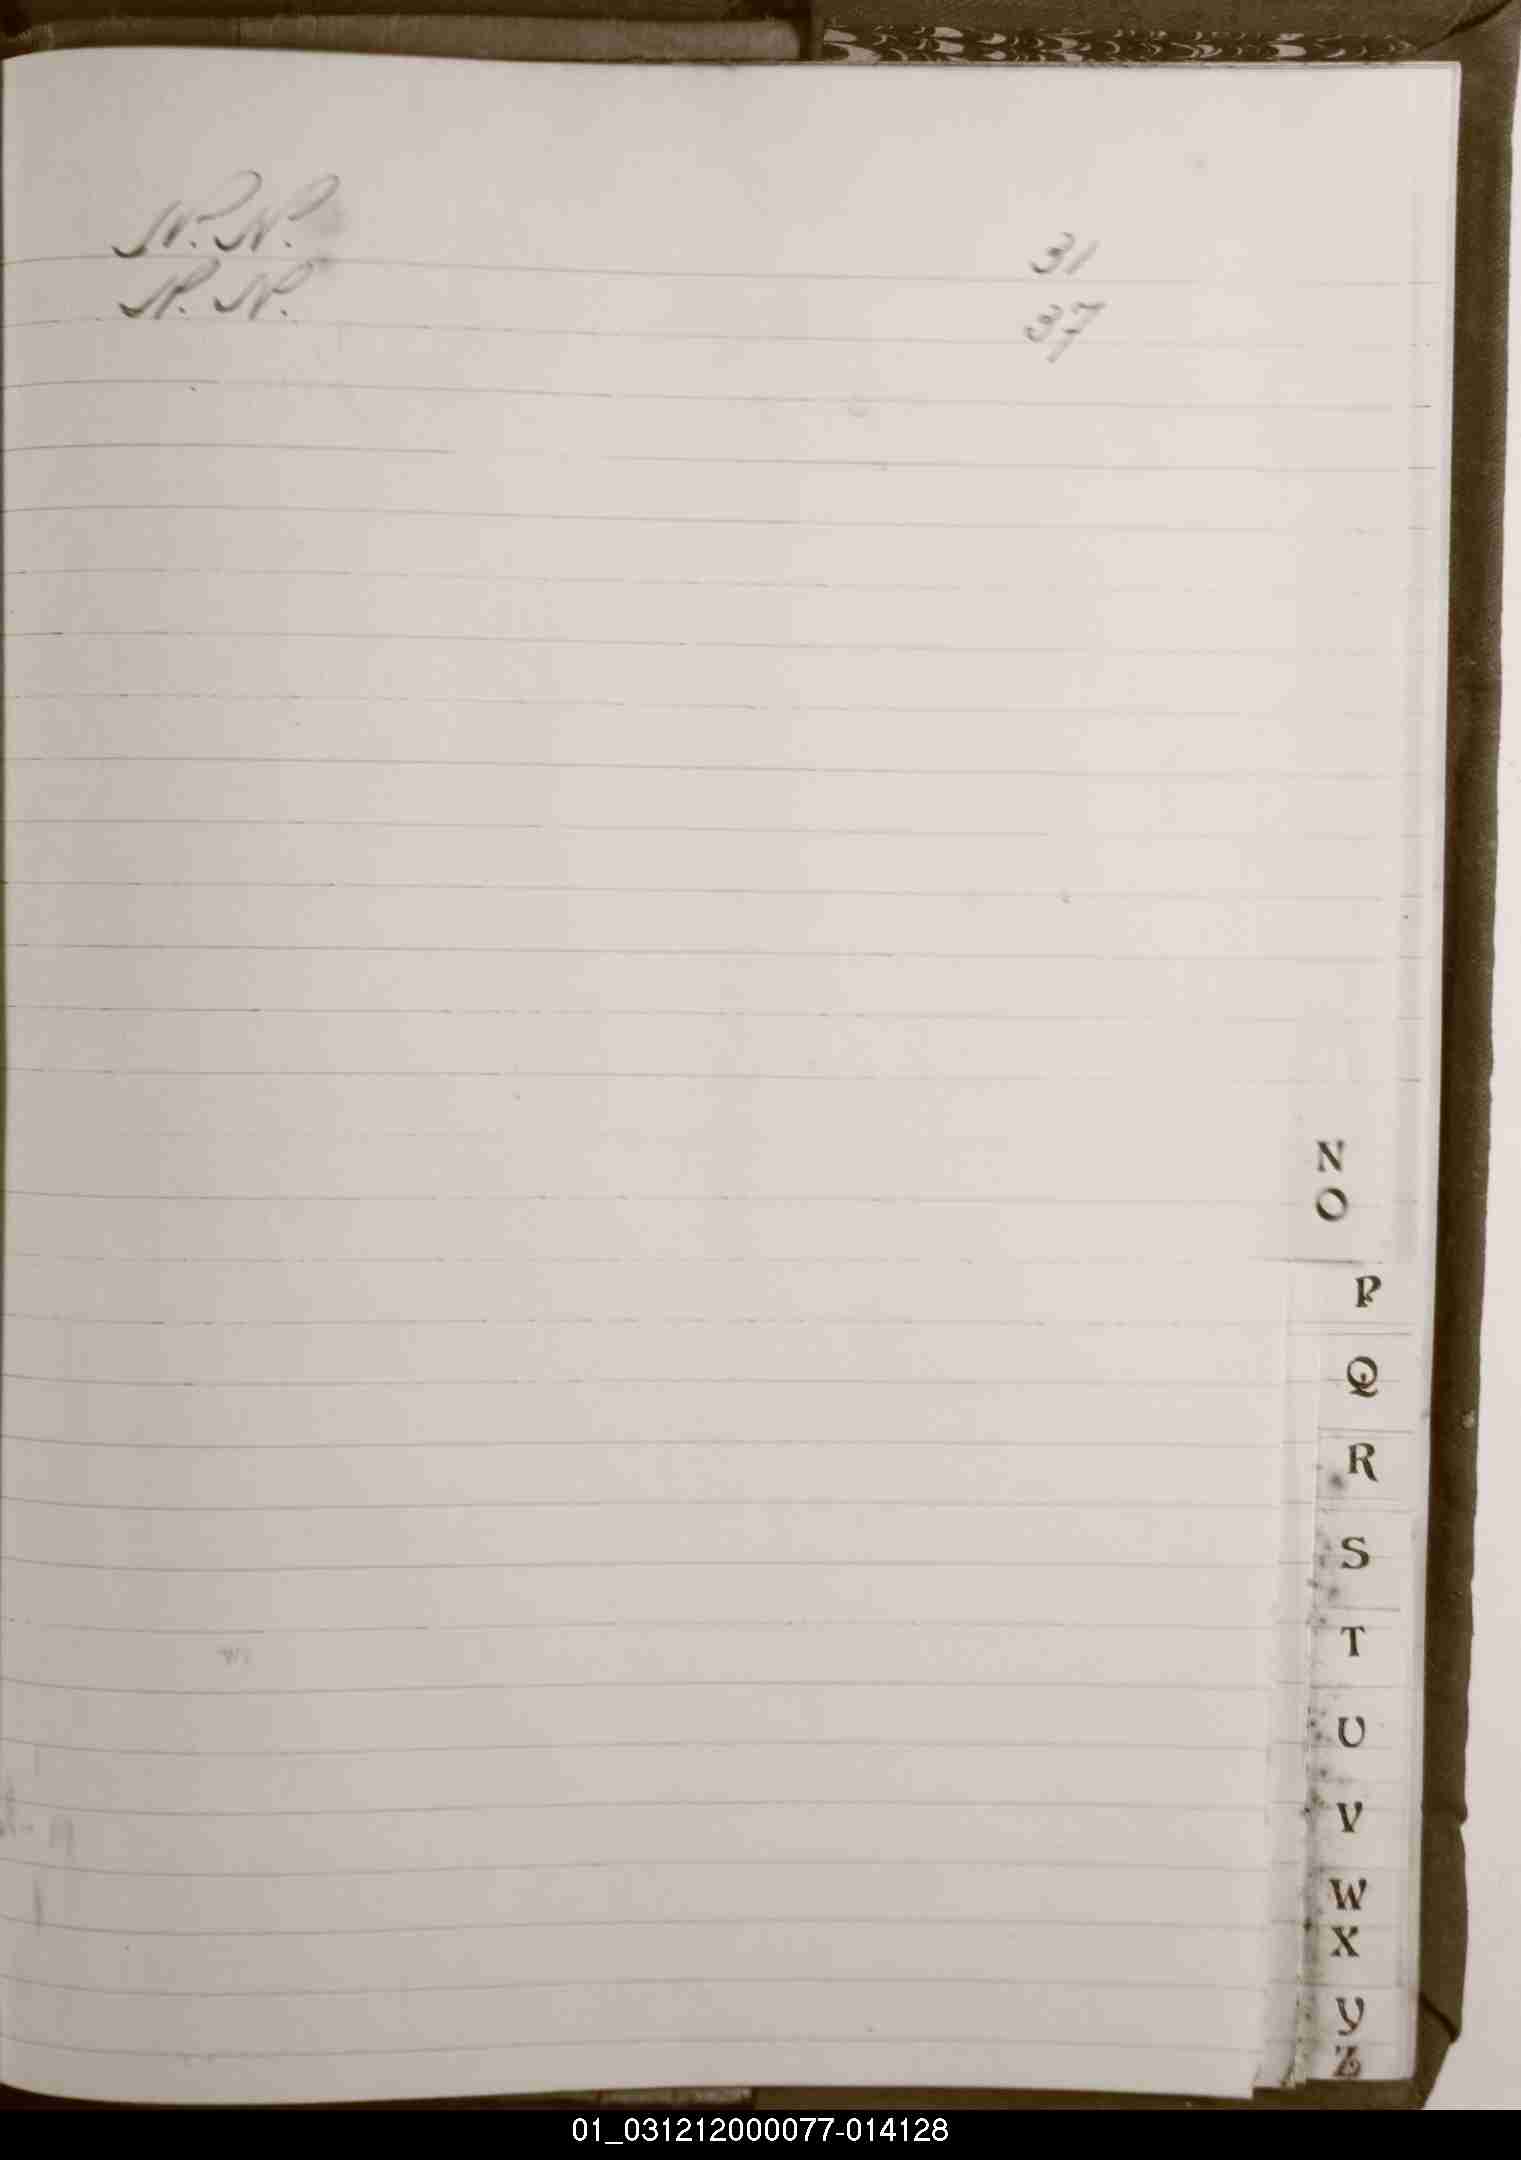 N. N. 31
N. N. 37
N
O
P
Q
R
S
T
U
V
W
X
Y
Z
01_031212000077-014128